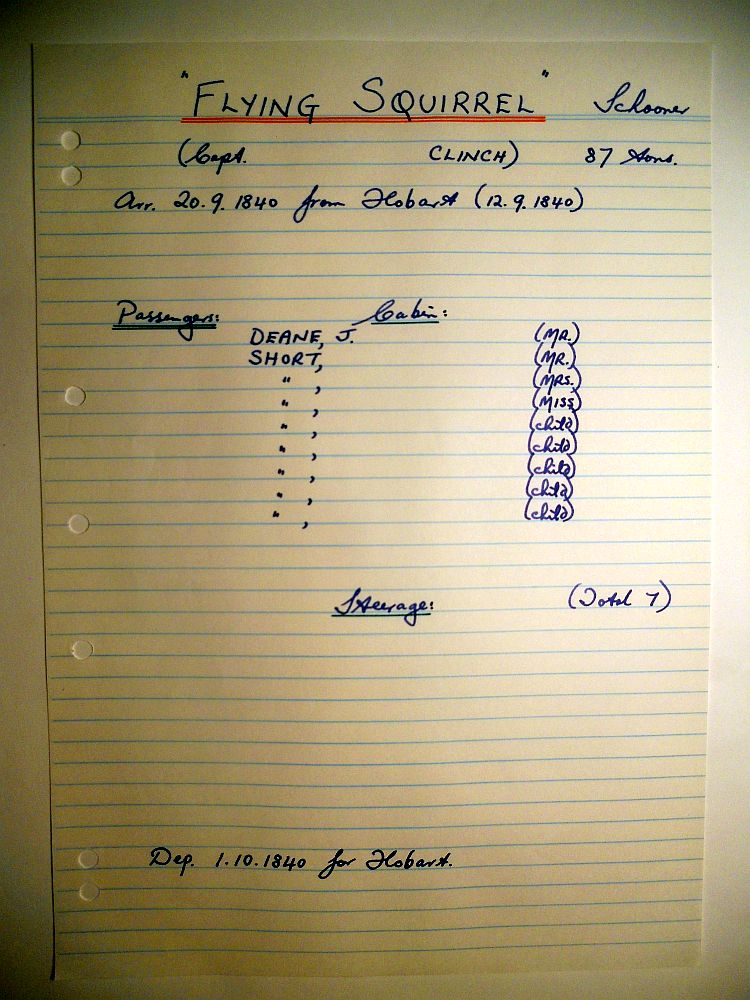 "FLYING SQUIRREL" Schooner
(Capt. CLINCH) 87 tons.
Arr. 20.9.1840 from Hobart (12.9.1840)
Passengers: Cabin:
DEANE, J. (MR.)
SHORT, (MR.)
" , (MRS.)
" , (MISS)
" , (child)
" , (child)
" , (child)
" , (child)
" , (child)
Steerage: (Total 7)
Dep. 1.10.1840 for Hobart.